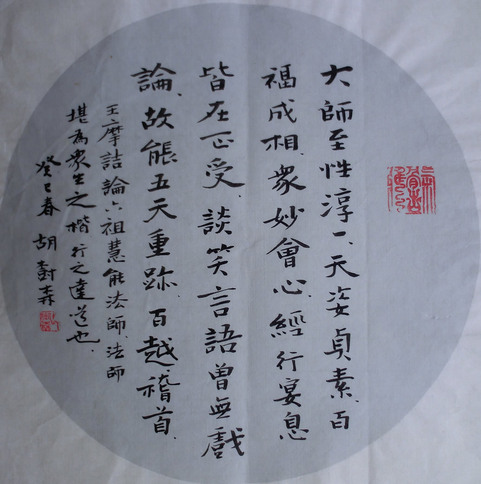 大師至性淳一、天姿貞素、百
福成相、衆妙會心、經行宴息
皆在正受、談笑言語曾無戲
論、故能五天重跡、百越稽首、
王摩詰論六祖慧能法師、法師
堪為衆生之楷行之達道也、
癸巳春 胡